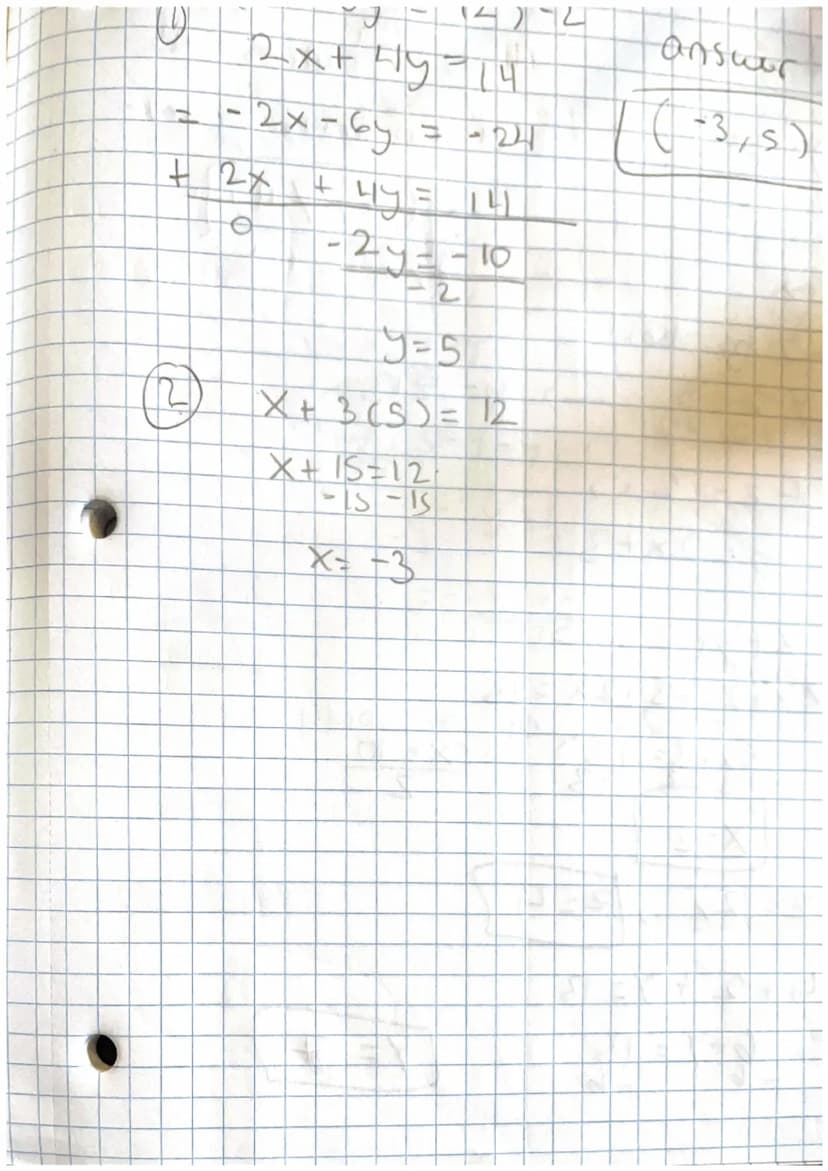 ①
2x + 4y = 14
answer
= -2x - 6y = -24
(-3, 5)
+ 2x + 4y = 14
0 -2y = -10
-2
y = 5
② x + 3(5) = 12
x + 15 = 12
-15 -15
x = -3